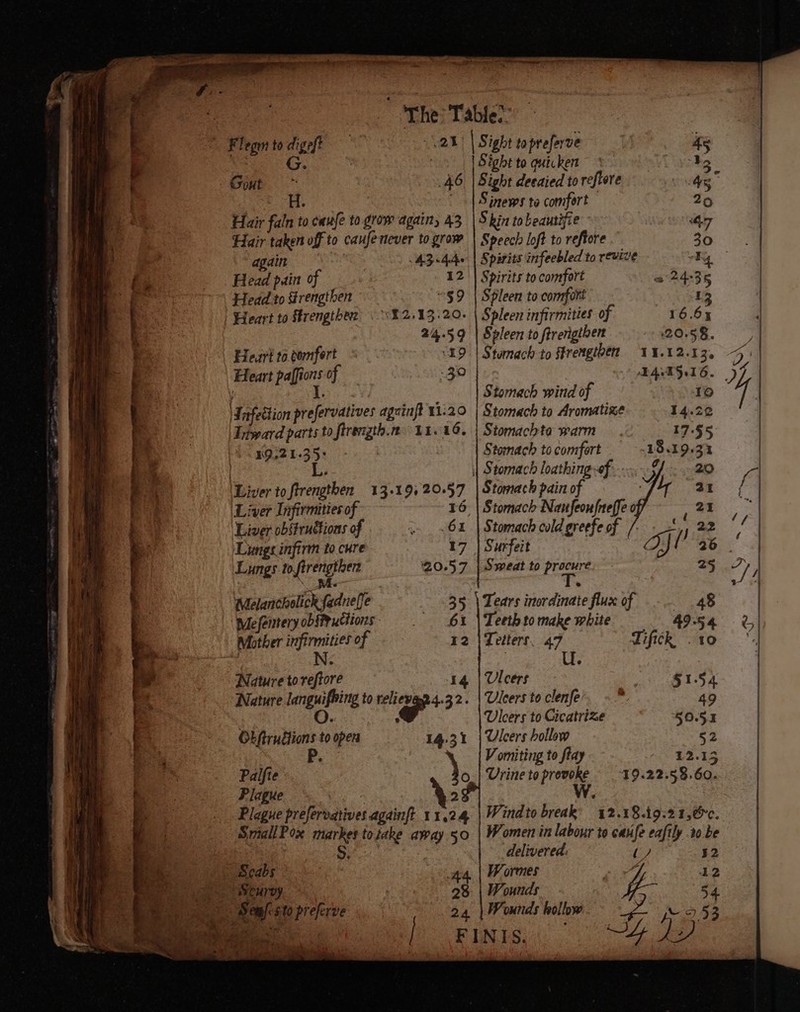 The Table.
Flegm to digeſt 21
G.
Gout 46
H.
Hair faln to cauſe to grow again, 43
Hair taken off to cauſe never to grow
again 43.44.
Head pain of 12
Head to ſtrengthen 59
Heart to ſtrengthen 12.13.20.
24.59
Heart to comfort 19
Heart paſſions of 30
I.
Infection preſervatives againſt 11.20
Inward parts to ſtrength.n 11.16.
19.21.35.
L.
Liver to ſtrengthen 13.19, 20.57
Liver Infirmities of 16
Liver obſtructions of 61
Lungs infirm to cure 17
Lungs to ſtrengthen 20.57
M.
Melancholick ſadneſſe 35
Meſentery obſtructions 61
Mother infirmities of 12
N.
Nature to reſtore 14
Nature languiſhing to relieve 24.32.
O.
Obſtructions to open 14.31
P.
Palſie 30
Plague 28
Plague preſervatives againſt 11,24
Small Pox markes to take away 50
S.
Scabs 44
Scurvy 28
to preſerve 24
Sight to preſerve 45
Sight to quicken 13
Sight decaied to reſtore 45
Sinews to comfort 20
Skin to beautifie 47
Speech loſt to reſtore 30
Spirits infeebled to revive 14
Spirits to comfort 24.35
Spleen to comfort 13
Spleen infirmities of 16.61
Spleen to ſtrengthen 20.58.
Stomach to ſtrengthen 11.12.13.
14.15.16.
Stomach wind of 10
Stomach to Aromatize 14.22
Stomach to warm 17.55
Stomach to comfort 18.19.31
Stomach loathing of 20
Stomach pain of 21
Stomach Nauſeouſneſſe of 21
Stomach cold greefe of 22
Surfeit 26
Sweat to procure 25
T.
Tears inordinate flux of 48
Teeth to make white 49.54
Tetters 47 Tiſick 10
U.
Ulcers 51.54
Ulcers to clenſe 49
Ulcers to Cicatrize 50.51
Ulcers hollow 52
Vomiting to ſtay 12.13
Urine to provoke 19.22.58.60.
W.
Wind to break 12.18.19.21,&c.
Women in labour to cauſe eaſily to be
delivered. 32
Wormes 12
Wounds 54
Wounds hollow 53
FINIS.